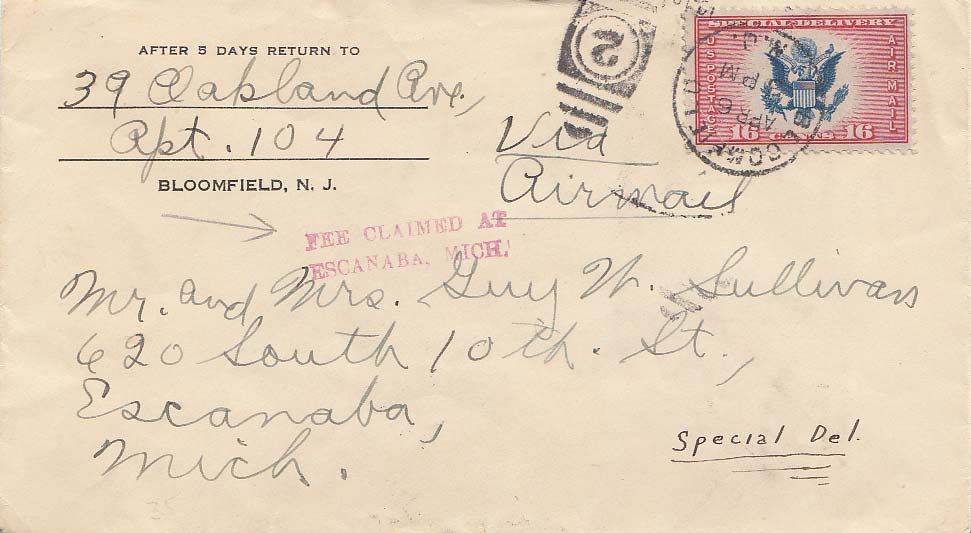 AFTER 5 DAYS RETURN TO
39 Oakland Ave.,
Apt. 104
BLOOMFIELD, N. J.
Via
Airmail
2
SPECIAL DELIVERY
U S POSTAGE
AIR MAIL
16 CENTS 16
BLOOMFIELD
N.J.
APR 6
PM
FEE CLAIMED AT
ESCANABA, MICH.
Mr. and Mrs. Guy W. Sullivan
620 South 10th. St.,
Escanaba,
Mich.
Special Del.